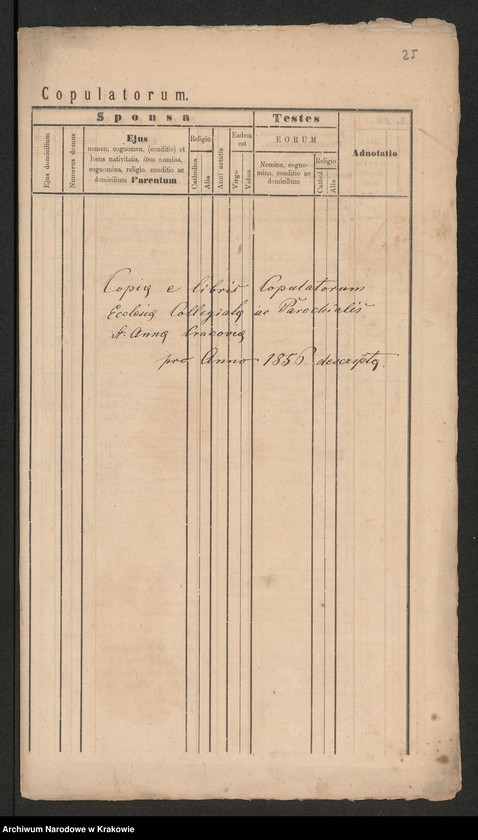 25
Copulatorum.
Sponsa
Testes
Adnotatio
Ejus domicilium
Numerus domus
Ejus
nomen, cognomen, (conditio) et
locus nativitatis, item nomina,
cognomina, religio, conditio ac
domicilium Parentum
Religio
Catholica
Alia
Anni aetatis
Eadem
est
Virgo
Vidua
EORUM
Nomina, cogno-
mina, conditio ac
domicilium
Religio
Cathol.
Alia
Copia e libris Copulatorum
Ecclesiæ Collegiatæ ac Parochialis
St. Annæ Cracoviæ
pro Anno 1856 descripta.
Archiwum Narodowe w Krakowie